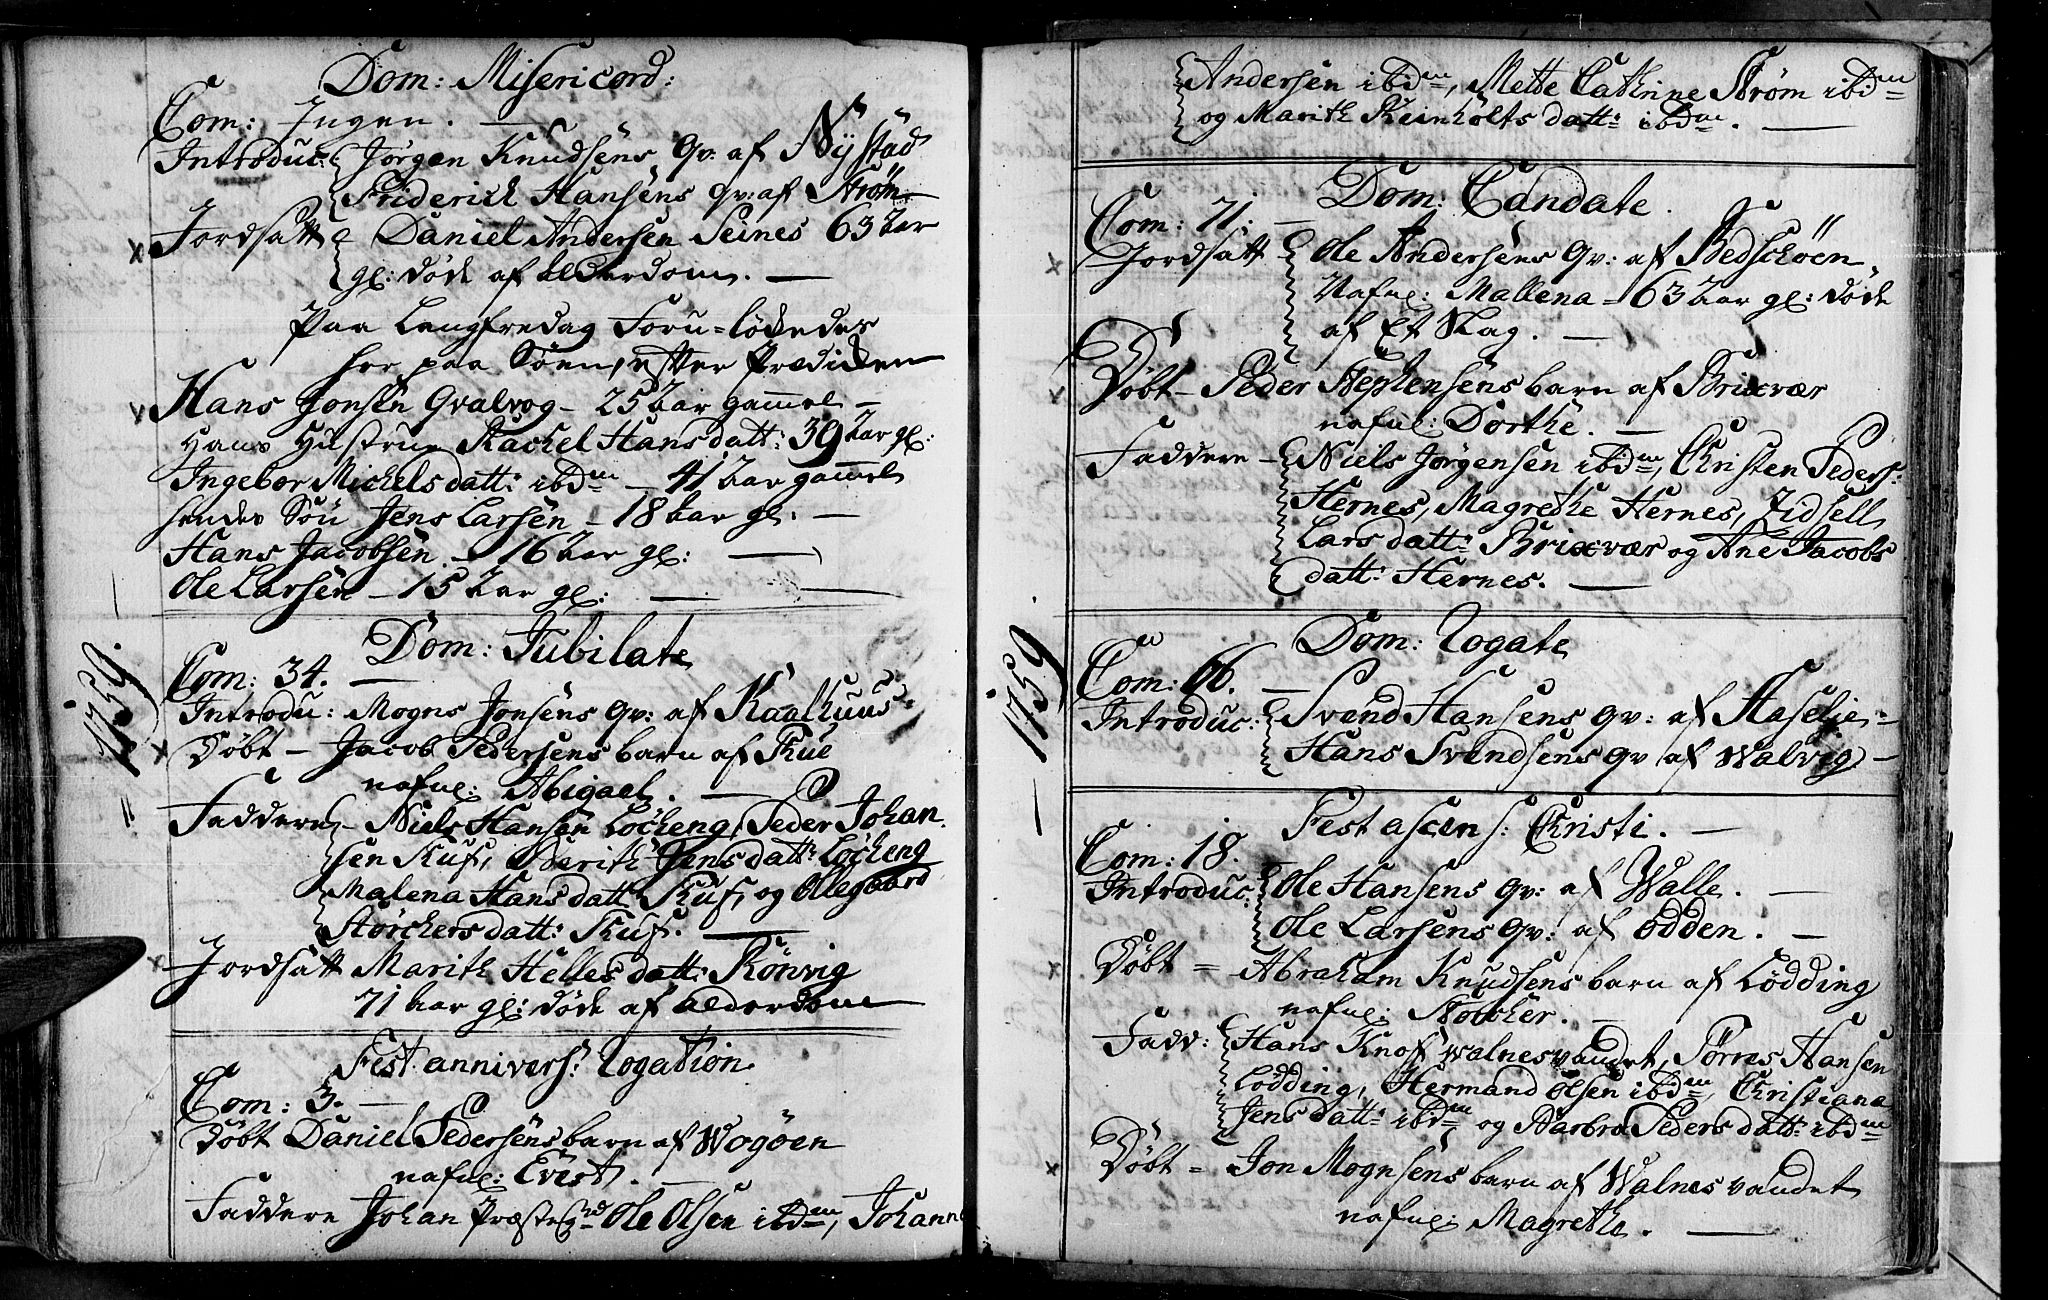 Dom: Misericord:
Com: Ingen.
Introduc: Jörgen Knudsens qv: af Nÿstad
Friderich Hansens qv: af Strøm
Jordsatt Daniel Andersen Seines 63 aar
gl: döde af alderdom.
Paa Langfredag Foru=lökedes
her paa Söen, efter Prædiken
Hans Jonsen Qvalvog - 25 aar gammel
Hans Hustrue Rachel Hansdatt: 39 aar gl:
Ingebor Michelsdatt: ibdm - 41 aar gammel
hendes Sön Jens Larsen - 18 aar gl.
Hans Jacobsen - 16 aar gl:
Ole Larsen - 15 aar gl:
1759.
Dom: Jubilate
Com: 34.
Introdu: Mogns Jonsens qv: af Kaalhuus
Döbt - Jacob Pedersens barn af
nafnl: Abigael.
Faddere - Niels Hansen Löcheng, Peder Johan
sen, Jensdatt: Löcheng
Malena Hansdatt og Ollegaard
Störchersdatt:
Jordsatt Marith Hellesdatt: Rönvig
71 aar gl: döde af alderdom
Fest annivers: Rogation.
Com: 3.
Döbt Daniel Pedersens barn af Wogöen
nafnl: Evert.
Faddere Johan Præstegrd Ole Olsen ibdm, Johann
Andersen ibdm, Mette Cathrine Strøm ibdm
og Marith Reinholtsdatt: ibdm.
Dom: Candate.
Com: 71.
Jordsatt Ole Andersens qv: af Bedschöen
Nafnl: Mallena - 63 aar gl: döde
af Et Slag.
Döbt - Peder Stephensens barn af Brixvær
nafnl: Dorthe.
Faddere - Niels Jørgensen ibdm, Christen Peders:
Hernes, Magrethe Hernes, Zidsell
Larsdatt: Brixvær og Ane Jacobs
datt: Hernes.
1759
Dom: Rogate
Com: 66.
Introduc: Svend Hansens qv: af Haselje
Hans Svendsens qv af Walvig
Fest ascens: Christi.
Com: 18.
Introduc: Ole Hansens qv: af Walle.
Ole Larsens qv: af Odden.
Döbt = Abraham Knudsens barn af Lödding
nafnl: Störcher.
Fadd: Hans Knof Walnesvandet, Törres Hansen
Lödding, Hermand Olsen ibdm, Christiana
Jensdatt: ibdm og Barbro Pedersdatt: ibdm
Döbt = Jon Mognsens barn af Walnesvandet
nafnl: Magrethe.